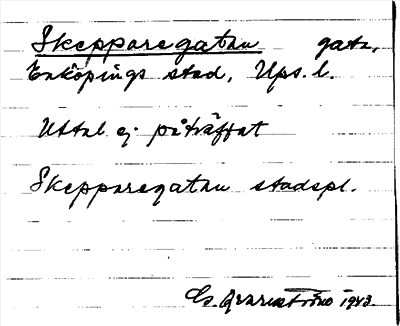 Skepparegatan gata,
Enköpings stad, Ups. l.
Uttal ej påträffat
Skepparegatan stadspl.
1943